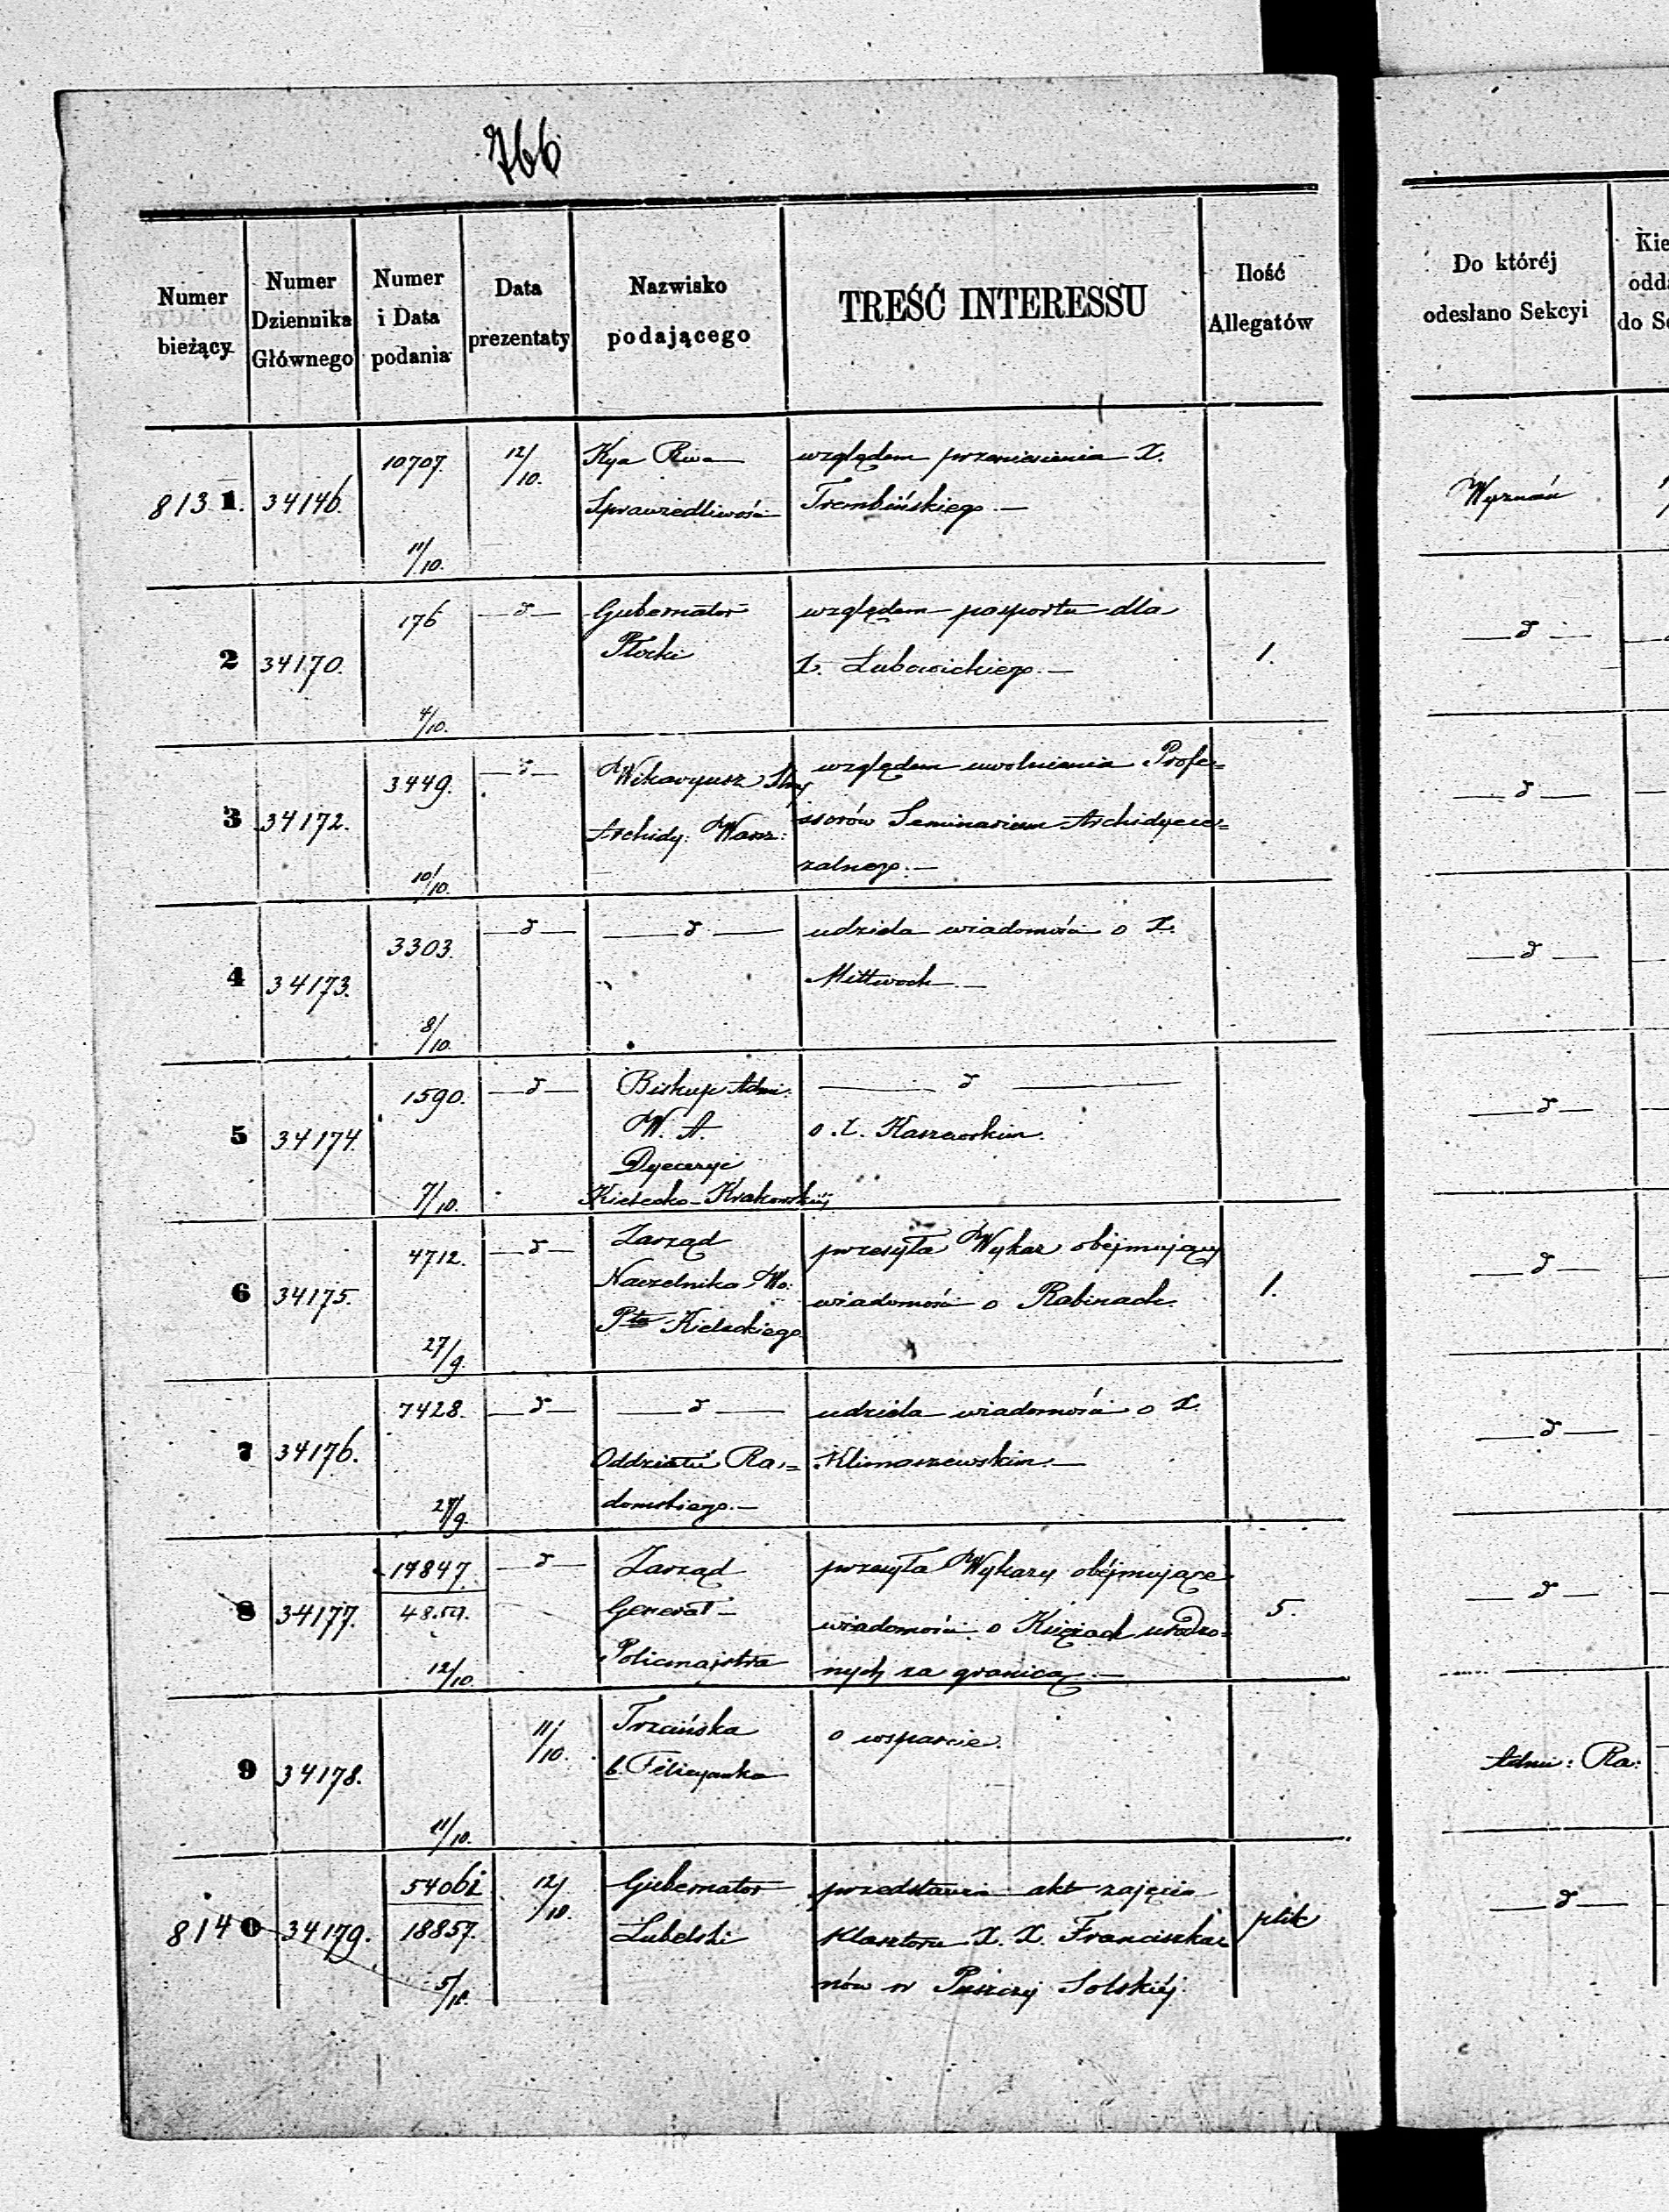 766
Numer bieżący
Numer Dziennika Głównego
Numer i Data podania
Data prezentaty
Nazwisko podającego
TREŚĆ INTERESSU
Ilość Allegatów
Do któréj odesłano Sekcyi
Kie
odda
do Se
8131. 34146. 10707. 12/10. Kya Rwa względem przeniesienia X.
Sprawiedliwości Trembińskiego.— Wyznań
11/10.
2 34170. 176 —d— Gubernator względem pasportu dla
Płocki X. Łubowickiego.— 1. —d—
4/10.
3 34172. 3449. —d— Wikaryusz względem uwolnienia Profe=
Archidy: Warsz: ssorów Seminarium Archidyece=
zalnego.— —d—
10/10.
4 34173. 3303. —d— —d— udziela wiadomości o X.
Mittwoch.— —d—
8/10.
5 34174. 1590. —d— Biskup Admi: —d—
W. A. o X. Kaszewskim. —d—
Dyecezyi
7/10. Kielecko-Krakowskiéj
6 34175. 4712. —d— Zarząd przesyła Wykaz obejmujący
Naczelnika Wo: wiadomości o Rabinach. 1. —d—
Pto Kieleckiego
27/9.
7 34176. 7428. —d— —d— udziela wiadomości o X.
Oddziału Ra= Klimaszewskim.— —d—
28/9. domskiego.—
8 34177. 17847. —d— Zarząd przesyła Wykazy obéjmujące
Generał— wiadomości o Księżach urodzo= 5. —d—
12/10. Policmajstra nych za granicą.—
9 34178. 11/10. Trzcińska o wsparcie.
b. Felicyanka Admi: Ra:
11/10.
8140 34179. 12/10. Gubernator przedstawia akt zajęcia
18857. Lubelski Klasztoru X. X. Franciszka= plik —d—
5/10. nów w Puszczy Solskiéj